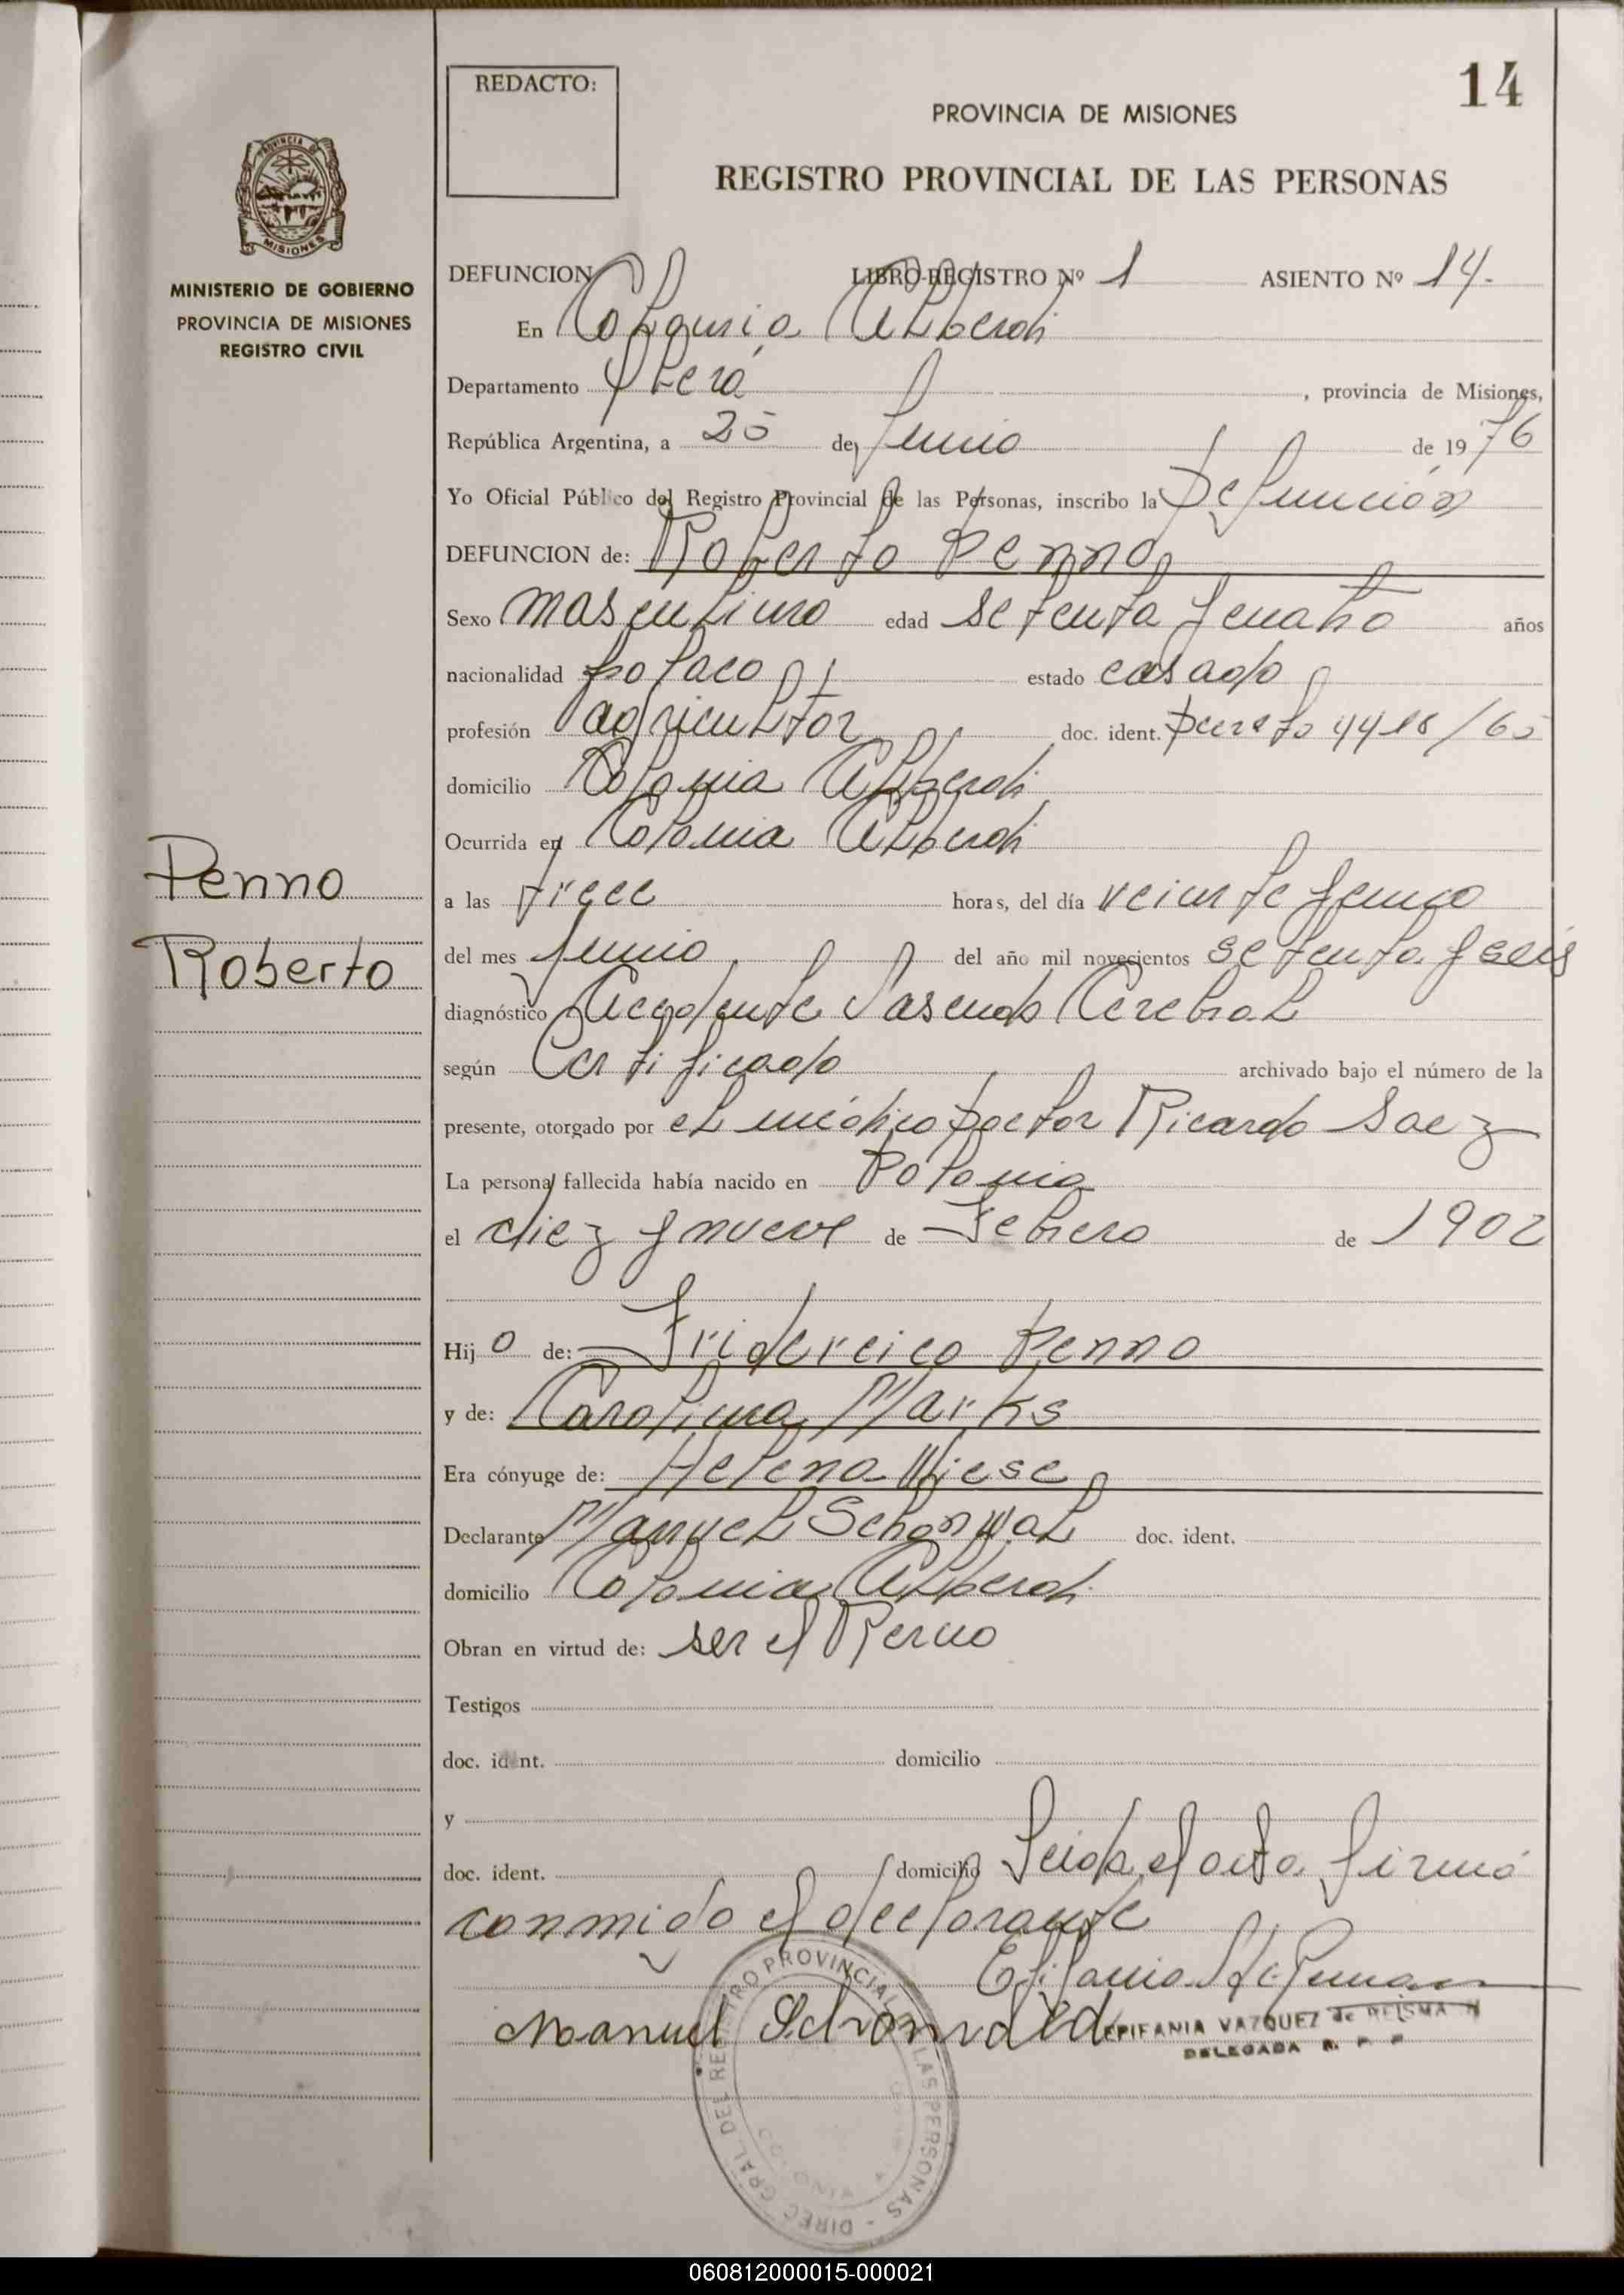 14
REDACTO:
PROVINCIA DE MISIONES
REGISTRO PROVINCIAL DE LAS PERSONAS
MISIONES
MINISTERIO DE GOBIERNO
PROVINCIA DE MISIONES
REGISTRO CIVIL
DEFUNCION LIBRO-REGISTRO Nº 1 ASIENTO Nº 14.
En Colonia Alberdi
Departamento Oberá, provincia de Misiones,
República Argentina, a 25 de Junio de 1976
Yo Oficial Público del Registro Provincial de las Personas, inscribo la Defunción
DEFUNCION de: Roberto Penno
Sexo masculino edad setenta y cuatro años
nacionalidad polaco estado casado
profesión agricultor doc. ident. Decreto 4418/65
domicilio Colonia Alberdi
Ocurrida en Colonia Alberdi
Penno
Roberto
a las trece horas, del día veinte y cinco
del mes Junio del año mil novecientos setenta y seis
diagnóstico Accidente Vascudo Cerebral
según Certificado archivado bajo el número de la
presente, otorgado por el médico Doctor Ricardo Saez
La persona fallecida había nacido en Polonia
el diez y nueve de Febrero de 1902
Hijo de: Fridereico Penno
y de: Carolina Marks
Era cónyuge de: Helena Wiese
Declarante Manuel Schonwal doc. ident.
domicilio Colonia Alberdi
Obran en virtud de: ser el Yerno
Testigos
doc. ident. domicilio
y
doc. ident. domicilio Leida el acta firmó
conmido el declarante
Manuel Schonwald
EPIFANIA VAZQUEZ de REISMAN
DELEGADA R. P. P.
DIREC. GRAL. DEL REGISTRO PROVINCIAL DE LAS PERSONAS
060812000015-000021